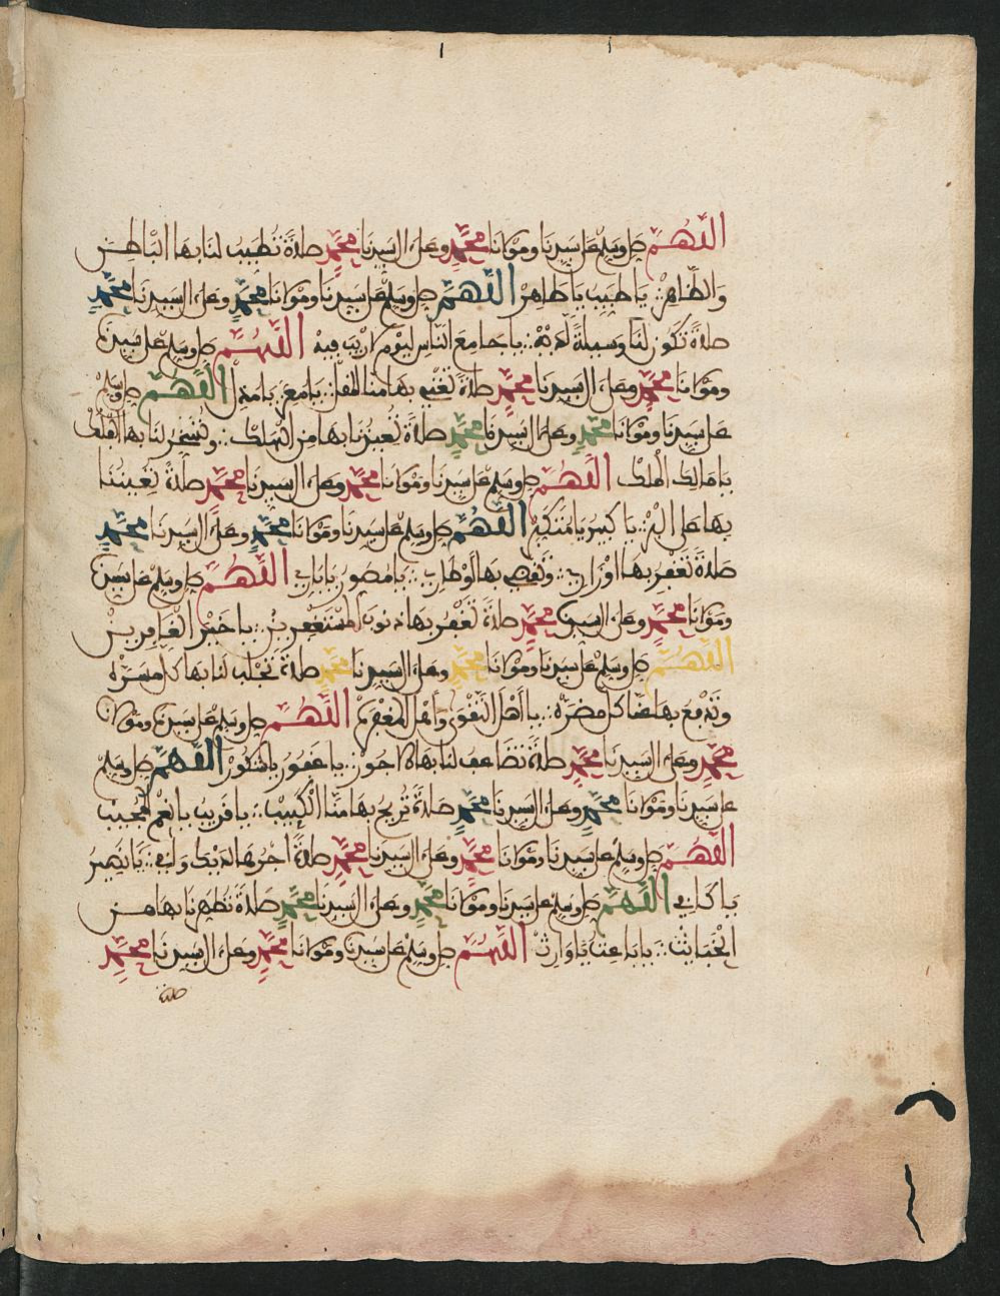 اللهم صل وسلم على سيدنا ومولانا محمد وعلى ال سيدنا محمد صلاة تطيب لنا بها الباطن
والظاهر يا طيب يا طاهر اللهم صل وسلم على سيدنا ومولانا محمد وعلى ال سيدنا محمد
صلاة تكون لنا وسيلة يا جامع الناس ليوم لا ريب فيه اللهم صل وسلم على سيدنا
ومولانا محمد وعلى ال سيدنا محمد صلاة بها منا يا معز يا مذل اللهم صل وسلم
على سيدنا ومولانا محمد وعلى ال سيدنا محمد صلاة تعيذنا بها من الهلك وتسخر لنا بها الفلك
يا مالك الملك اللهم صل وسلم على سيدنا ومولانا محمد وعلى ال سيدنا محمد صلاة تعيننا
بها على البر يا كبير يا متكبر اللهم صل وسلم على سيدنا ومولانا محمد وعلى ال سيدنا محمد
صلاة تغفر بها الاوزار وتقضي بها الاوطار يا مصور يا باري اللهم صل وسلم على سيدنا
ومولانا محمد وعلى ال سيدنا محمد صلاة تغفر بها ذنوب المستغفرين يا خير الغافرين
اللهم صل وسلم على سيدنا ومولانا محمد وعلى ال سيدنا محمد صلاة تجلب لنا بها كل مسرة
وتدفع بها عنا كل مضرة يا اهل التقوى واهل المغفرة اللهم صل وسلم على سيدنا ومولانا
محمد وعلى ال سيدنا محمد صلاة تضاعف لنا بها الاجور يا غفور يا شكور اللهم صل وسلم
على سيدنا ومولانا محمد وعلى ال سيدنا محمد صلاة تريح بها منا الكئيب يا قريب يا نعم المجيب
اللهم صل وسلم على سيدنا ومولانا محمد وعلى ال سيدنا محمد صلاة اجرها لديك وافي يا نصير
يا كافي اللهم صل وسلم على سيدنا ومولانا محمد وعلى ال سيدنا محمد صلاة تطهرنا بها من
الخبائث يا باعث يا وارث اللهم صل وسلم على سيدنا ومولانا محمد وعلى ال سيدنا محمد
صلاة